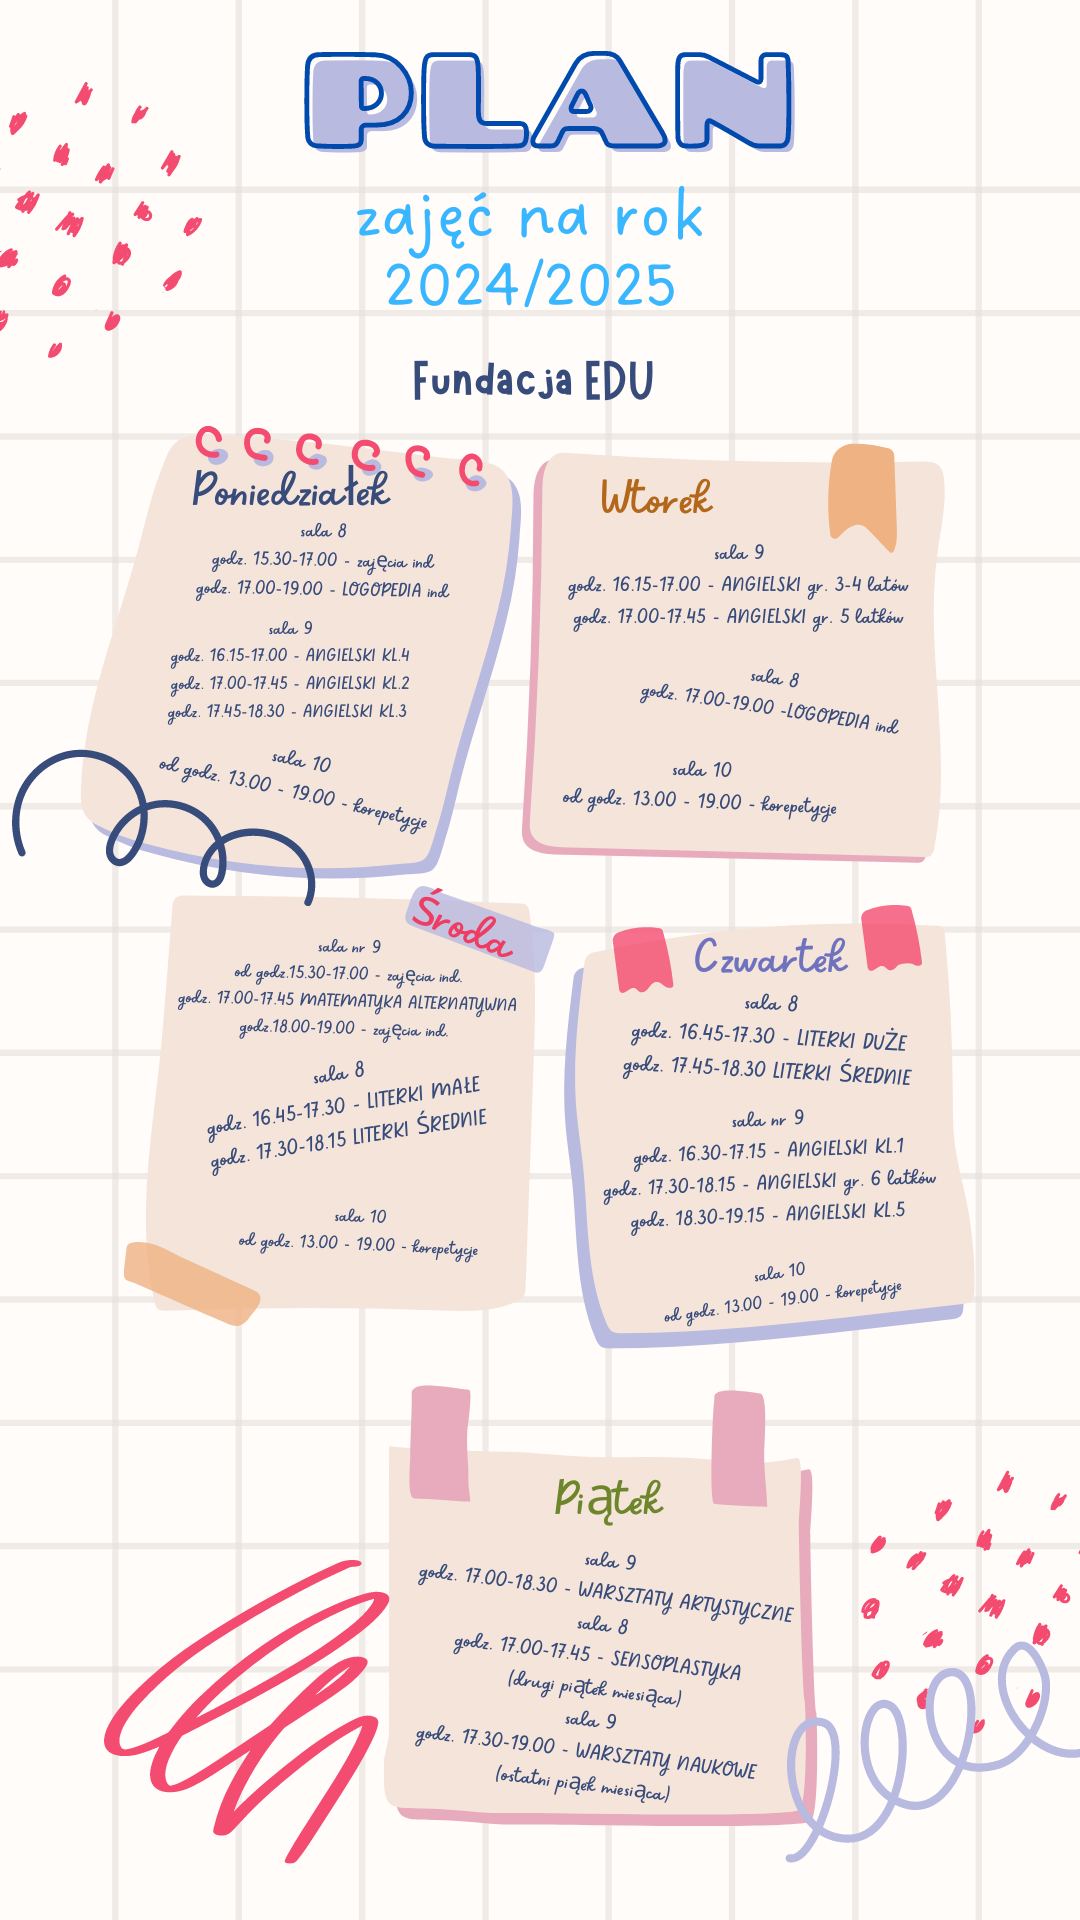 PLAN
zajęć na rok
2024/2025
Fundacja EDU
Poniedziałek
sala 8
godz. 15.30-17.00 - zajęcia ind
godz. 17.00-19.00 - LOGOPEDIA ind
sala 9
godz. 16.15-17.00 - ANGIELSKI KL.4
godz. 17.00-17.45 - ANGIELSKI KL.2
godz. 17.45-18.30 - ANGIELSKI KL.3
sala 10
od godz. 13.00 - 19.00 - korepetycje
Wtorek
sala 9
godz. 16.15-17.00 - ANGIELSKI gr. 3-4 latów
godz. 17.00-17.45 - ANGIELSKI gr. 5 latków
sala 8
godz. 17.00-19.00 -LOGOPEDIA ind
sala 10
od godz. 13.00 - 19.00 - korepetycje
Środa
sala nr 9
od godz.15.30-17.00 - zajęcia ind.
godz. 17.00-17.45 MATEMATYKA ALTERNATYWNA
godz.18.00-19.00 - zajęcia ind.
sala 8
godz. 16.45-17.30 - LITERKI MAŁE
godz. 17.30-18.15 LITERKI ŚREDNIE
sala 10
od godz. 13.00 - 19.00 - korepetycje
Czwartek
sala 8
godz. 16.45-17.30 - LITERKI DUŻE
godz. 17.45-18.30 LITERKI ŚREDNIE
sala nr 9
godz. 16.30-17.15 - ANGIELSKI KL.1
godz. 17.30-18.15 - ANGIELSKI gr. 6 latków
godz. 18.30-19.15 - ANGIELSKI KL.5
sala 10
od godz. 13.00 - 19.00 - korepetycje
Piątek
sala 9
godz. 17.00-18.30 - WARSZTATY ARTYSTYCZNE
sala 8
godz. 17.00-17.45 - SENSOPLASTYKA
(drugi piątek miesiąca)
sala 9
godz. 17.30-19.00 - WARSZTATY NAUKOWE
(ostatni piąek miesiąca)